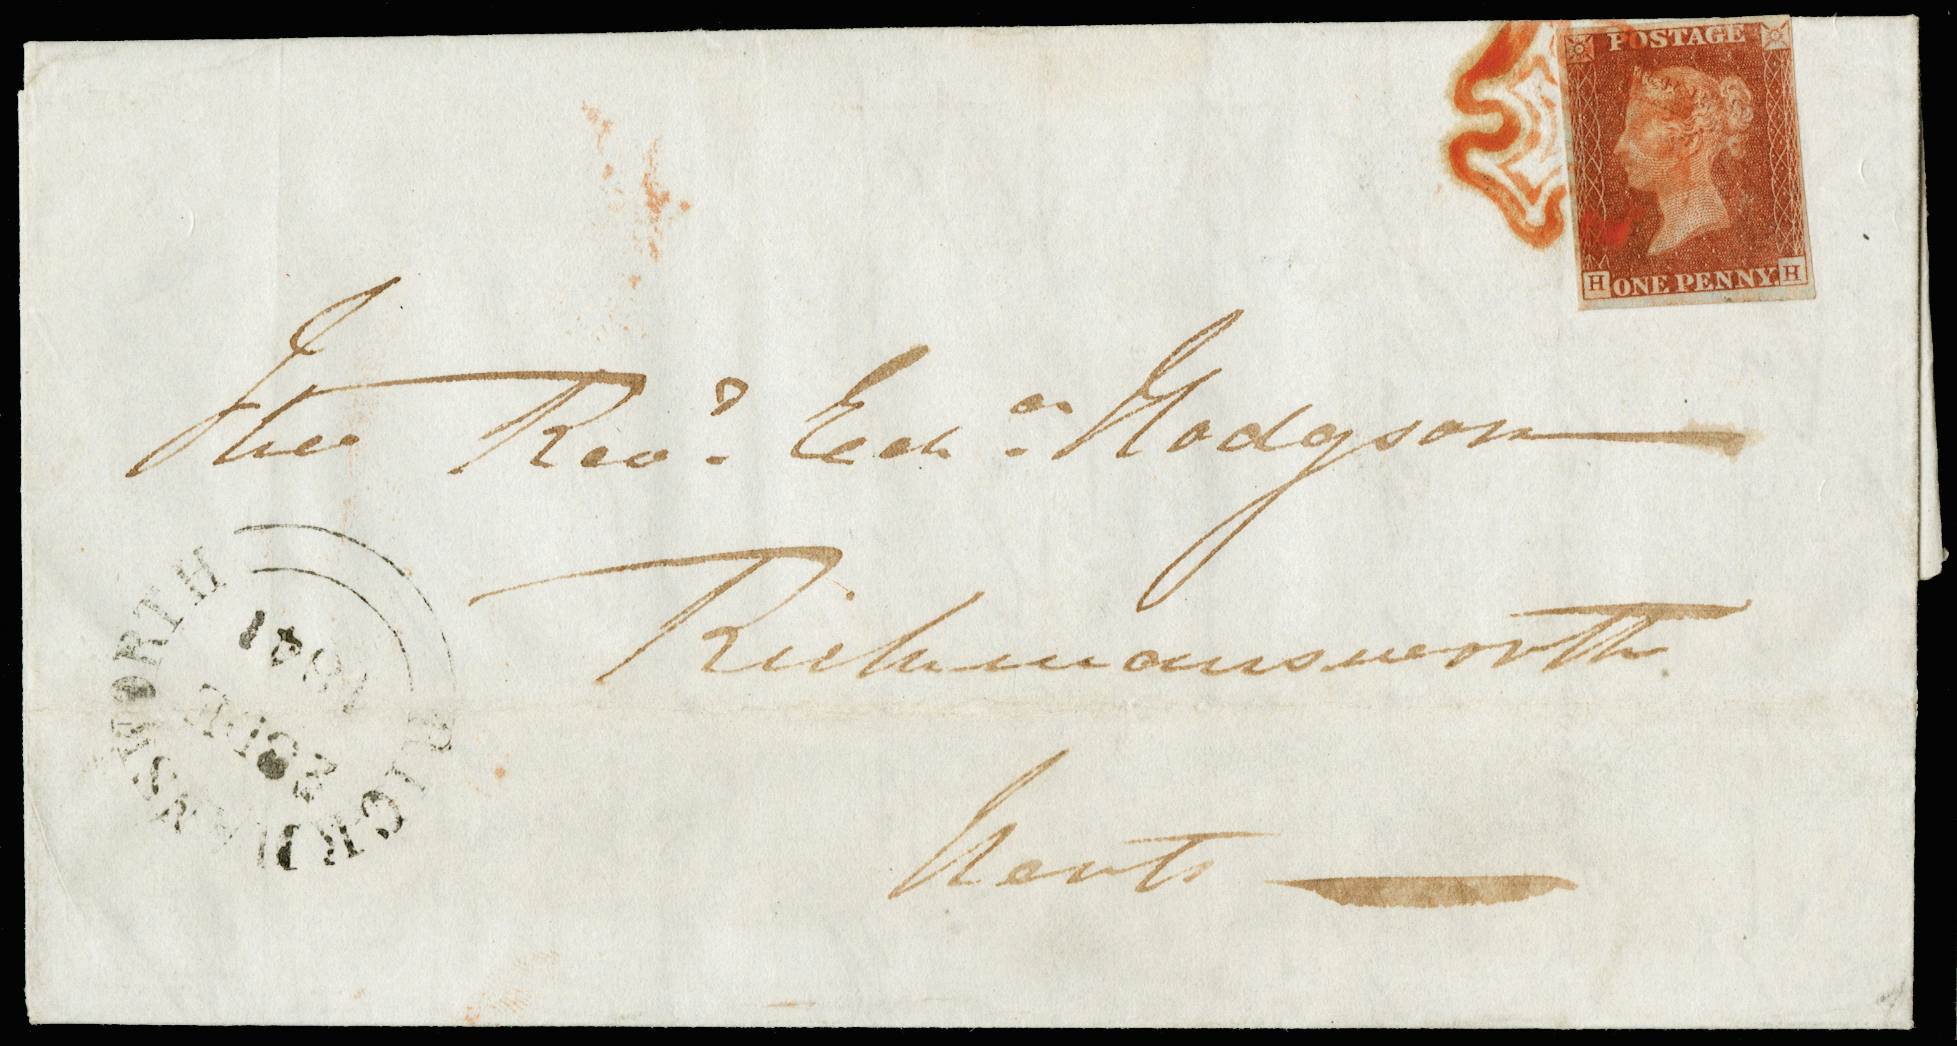 POSTAGE
H ONE PENNY. H
The Revd. Hodgson
Rickmansworth
Herts
RICKMANSWORTH
1841